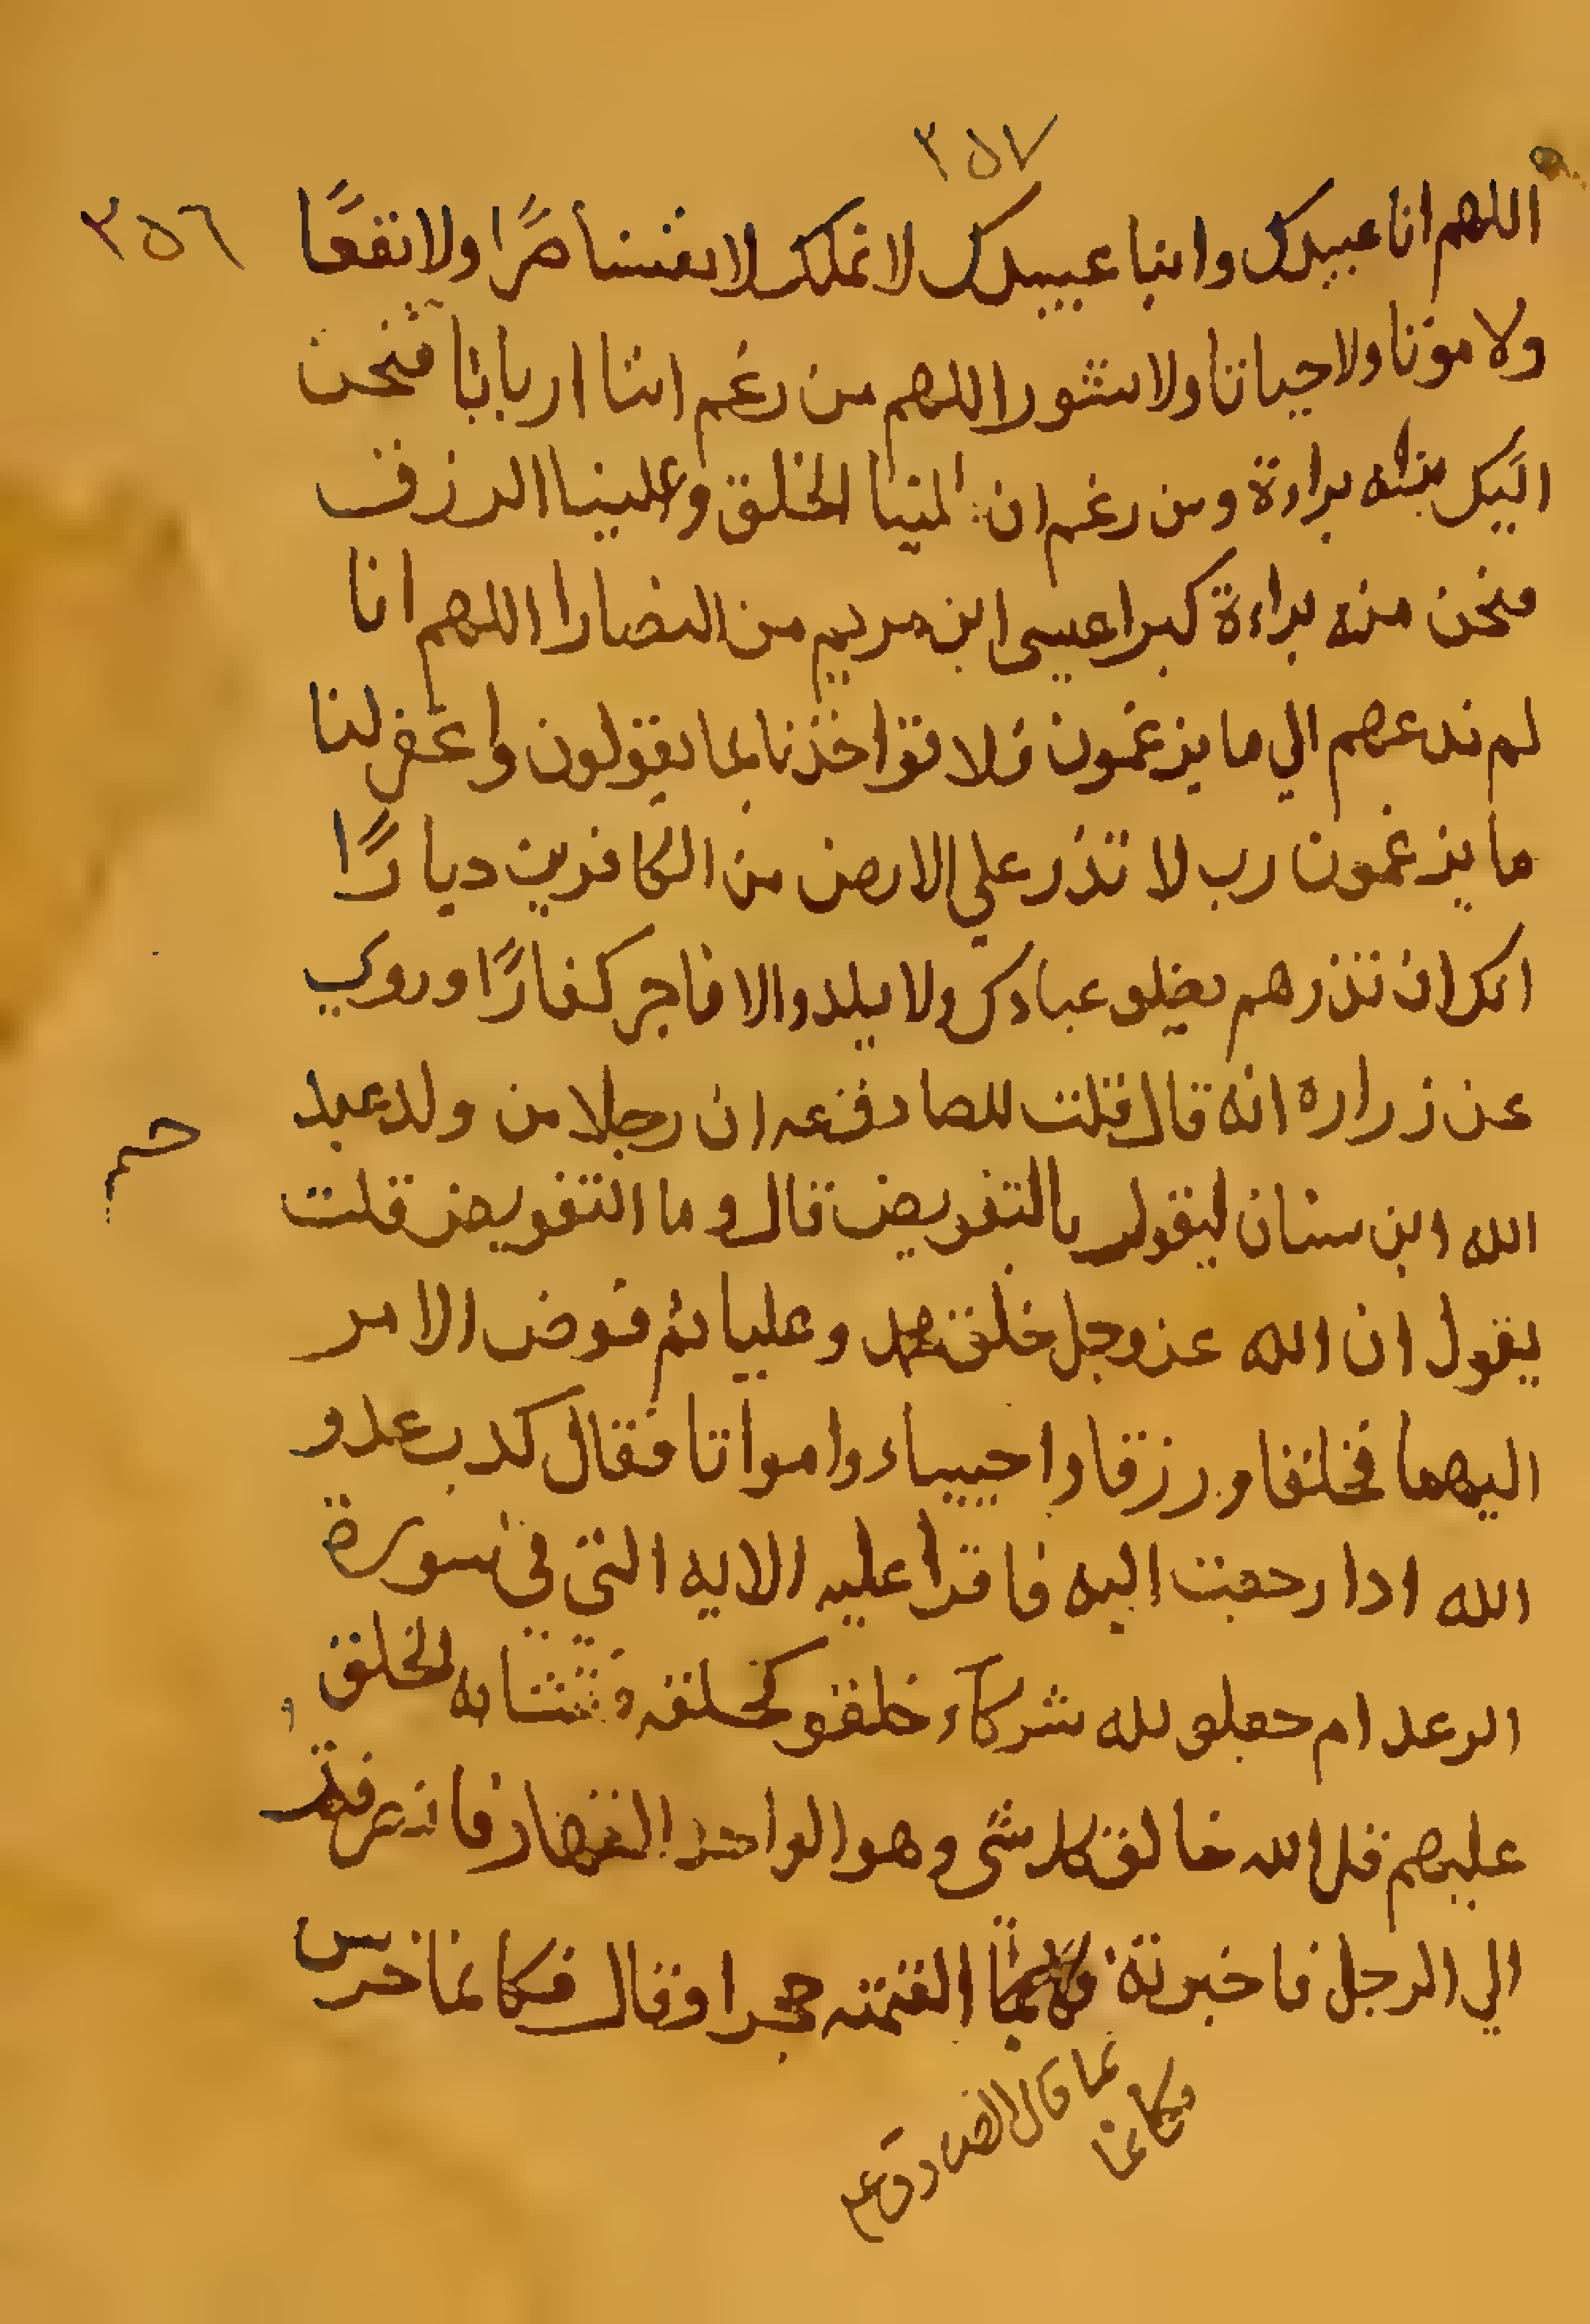 ٣٥٧
٣٥٦
اللهم انا عبيدك وابنا عبيدك لا نملك لانفسنا ضرًا ولا نفعًا
ولا موتنا ولا حياتنا ولا نشورا اللهم من زعم اننا اربابًا فنحن
اليك منه براءة ومن زعم ان الينا الخلق وعلينا الرزق
فنحن منه براءة كبرا عيسى ابن مريم من النصارا اللهم انا
لم ندعهم الي ما يزعمون فلا تواخذنا بما يقولون واغفر لنا
ما يزعمون رب لا تذر علي الارض من الكافرين ديارًا
انك ان تذرهم يضلو عبادك ولا يلدوا الا فاجر كفارًا وروي
عن زراره انه قال قلت للصادق عه ان رجلا من ولد عبد
حم
الله ابن سنان ليقول بالتفويض قال وما التفويض قلت
يقول ان الله عز وجل خلق محمد وعليا ثم فوض الامر
اليهما فخلقا ورزقا واحيياء وامواتا فقال كدب عدو
الله ادا رجعت اليه فاقرا عليه الايه التي في سورة
الرعد ام جعلو لله شركاء خلقو كخلقه فتشابه الخلق
عليهم قل الله خالق كل شي وهو الواحد القهار فانصرفت
الي الرجل فاخبرته القمته حجرا وقال فكانما خرس
فكانما
بما قال الصادق عم